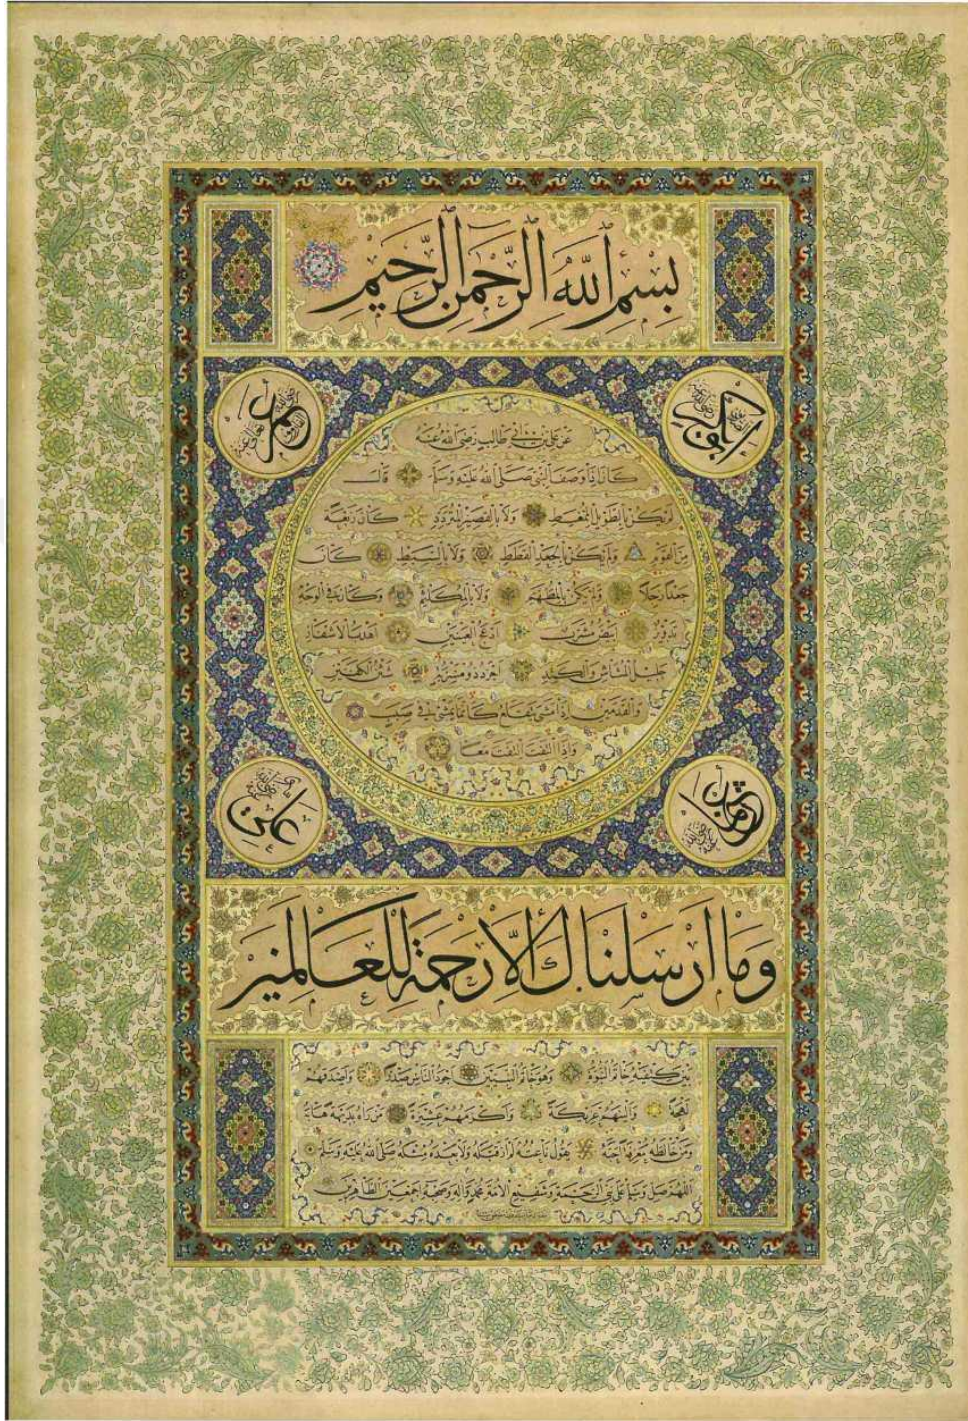 بِسْمِ اللّٰهِ الرَّحْمٰنِ الرَّحِيمِ
ابو بكر رضي الله عنه
عمر رضي الله عنه
عن علي بن ابي طالب رضي الله عنه
كان اذا وصف النبي صلى الله عليه وسلم قال
لم يكن بالطويل الممغط ولا بالقصير المتردد كان ربعة
من القوم ولم يكن بالجعد القطط ولا بالسبط كان
جعدا رجلا ولم يكن بالمطهم ولا بالمكلثم وكان في الوجه
تدوير ابيض مشرب ادعج العينين اهدب الاشفار
جليل المشاش والكتد اجرد ذو مسربة شثن الكفين
والقدمين اذا مشى تقلع كانما يمشي في صبب
واذا التفت التفت معا
عثمان رضي الله عنه
علي رضي الله عنه
وَمَا اَرْسَلْنَاكَ اِلَّا رَحْمَةً لِلْعَالَمِينَ
بين كتفيه خاتم النبوة وهو خاتم النبيين اجود الناس صدرا واصدقهم
لهجة والينهم عريكة واكرمهم عشيرة من راه بديهة هابه
ومن خالطه معرفة احبه يقول ناعته لم ار قبله ولا بعده مثله صلى الله عليه وسلم
اللهم صل وسلم على نبي الرحمة وشفيع الامة محمد واله وصحبه اجمعين الطاهرين